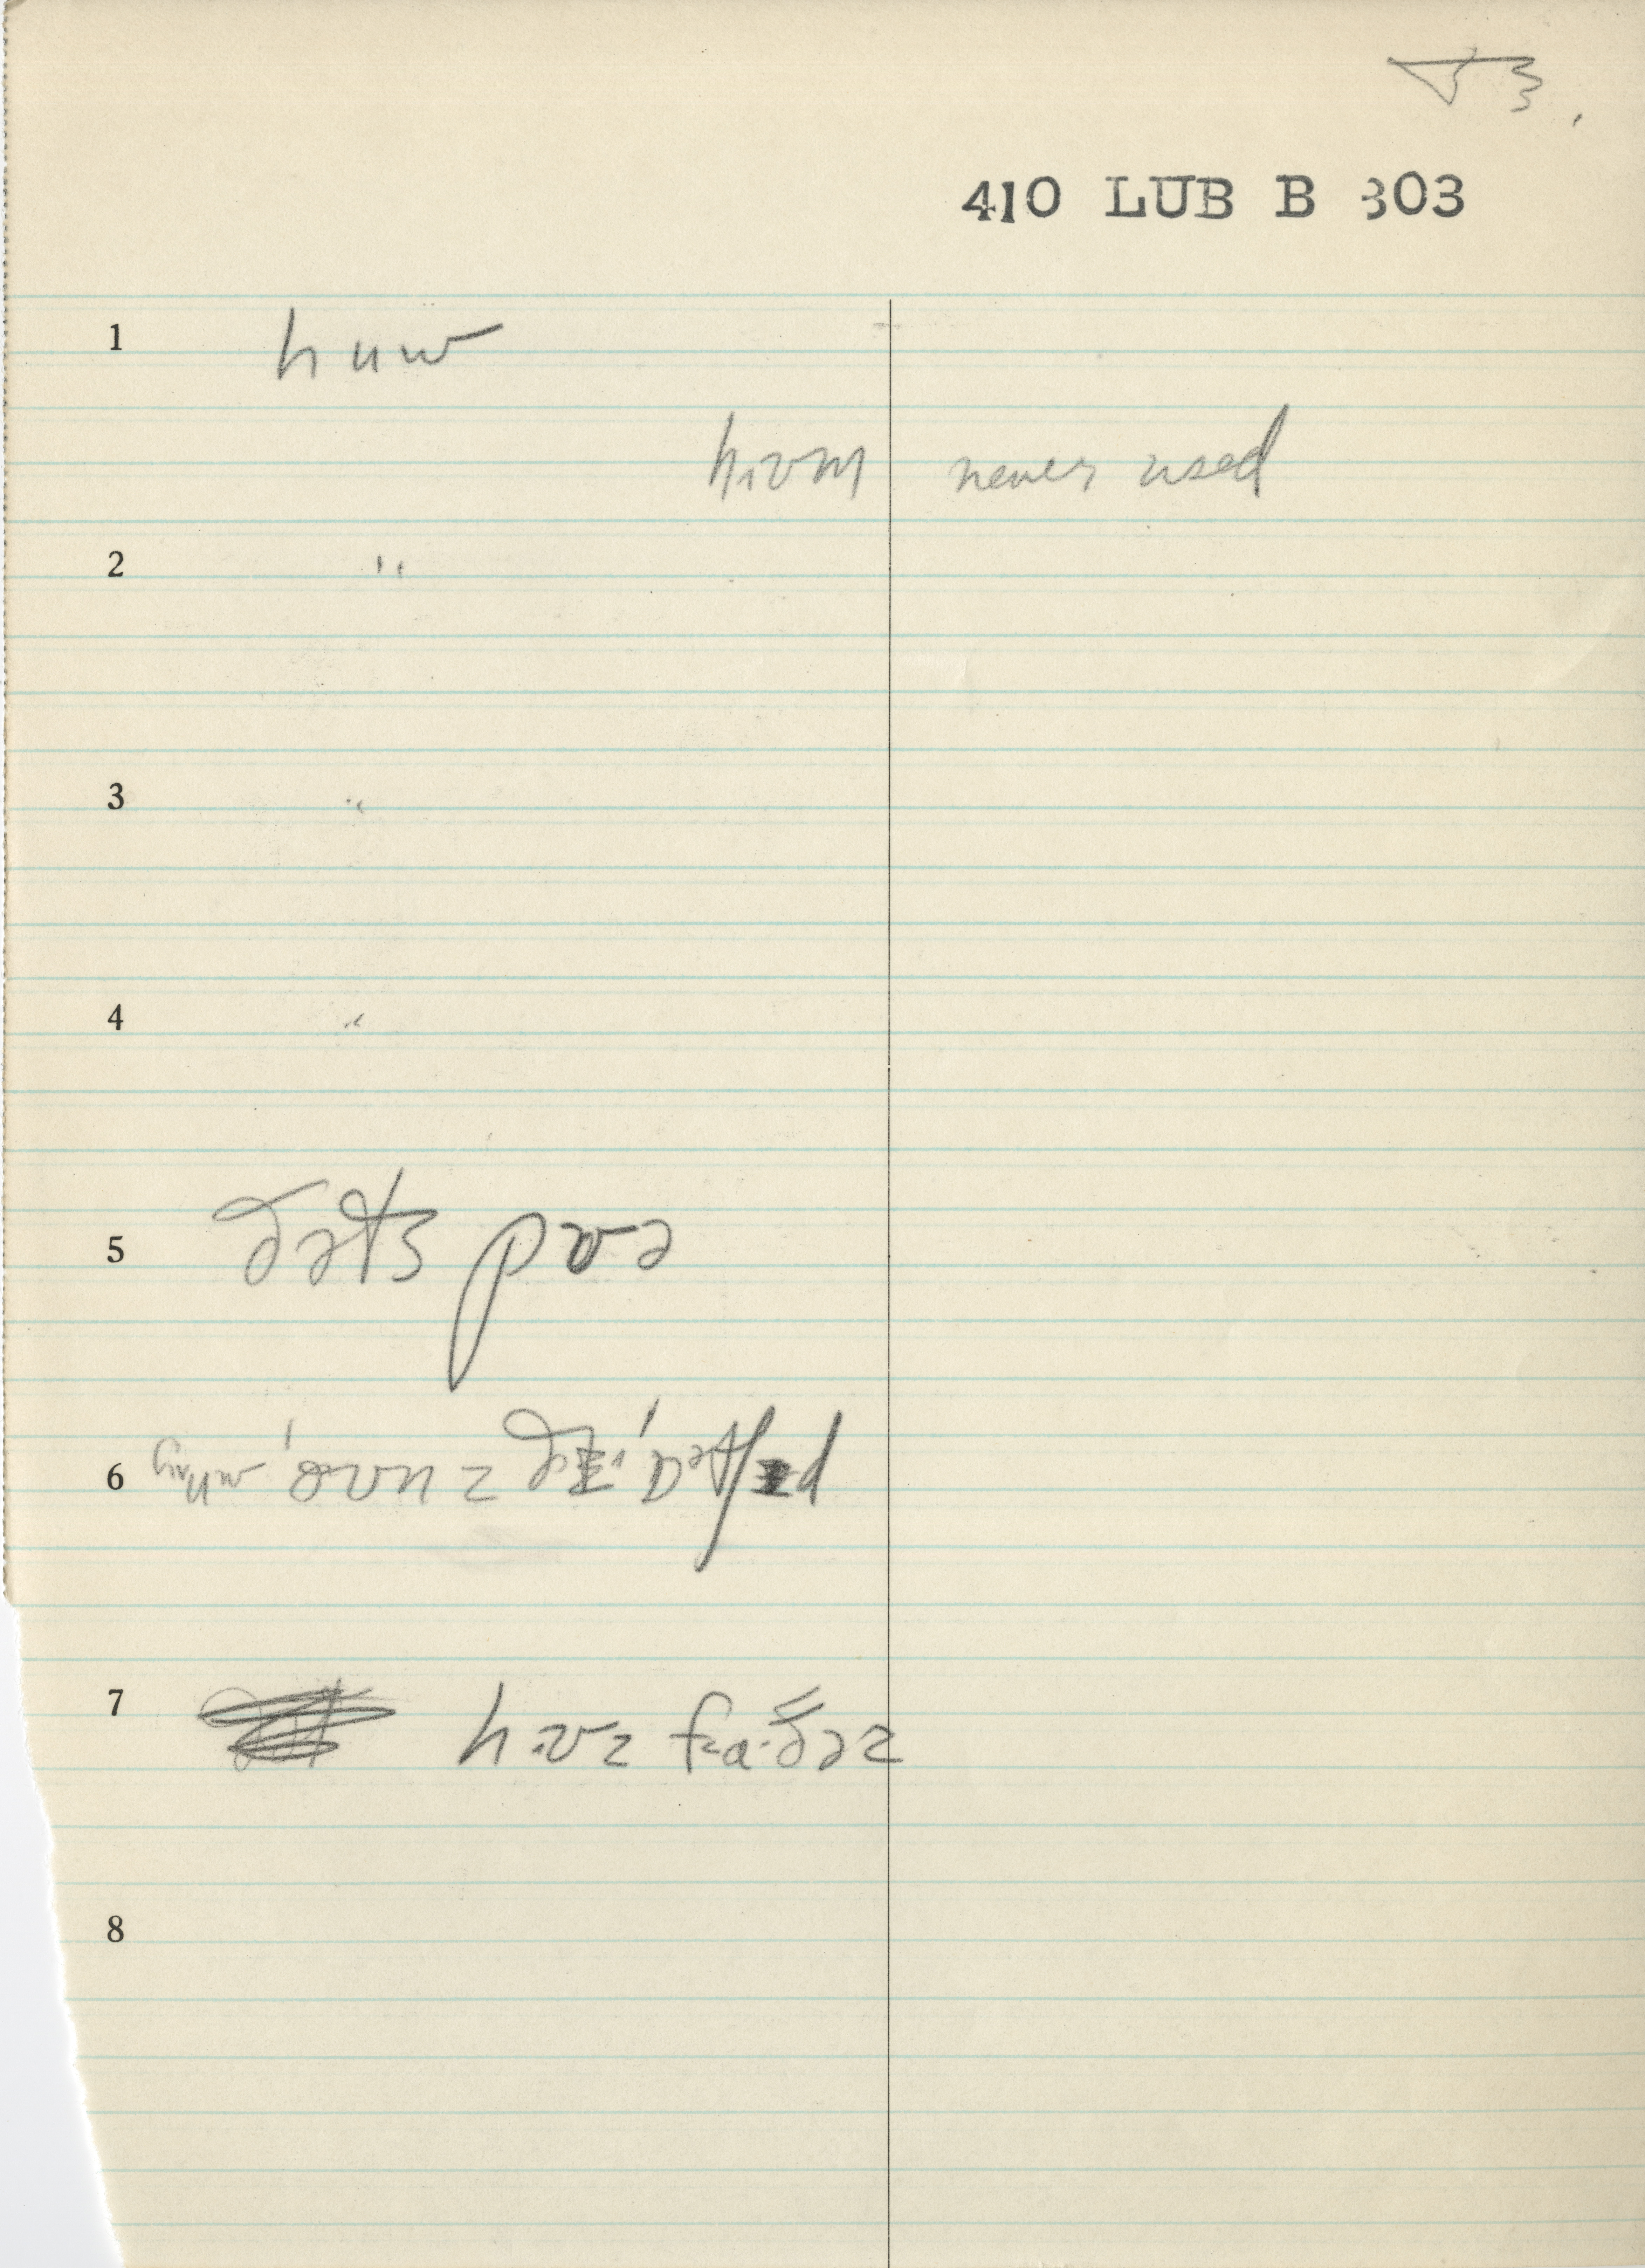 410 LUB B 303
1 huw
hɪʊm never used
2 ''
3 "
4 "
5 ðəts pʊə
6
7 hɪʊz fa·ðəz
8